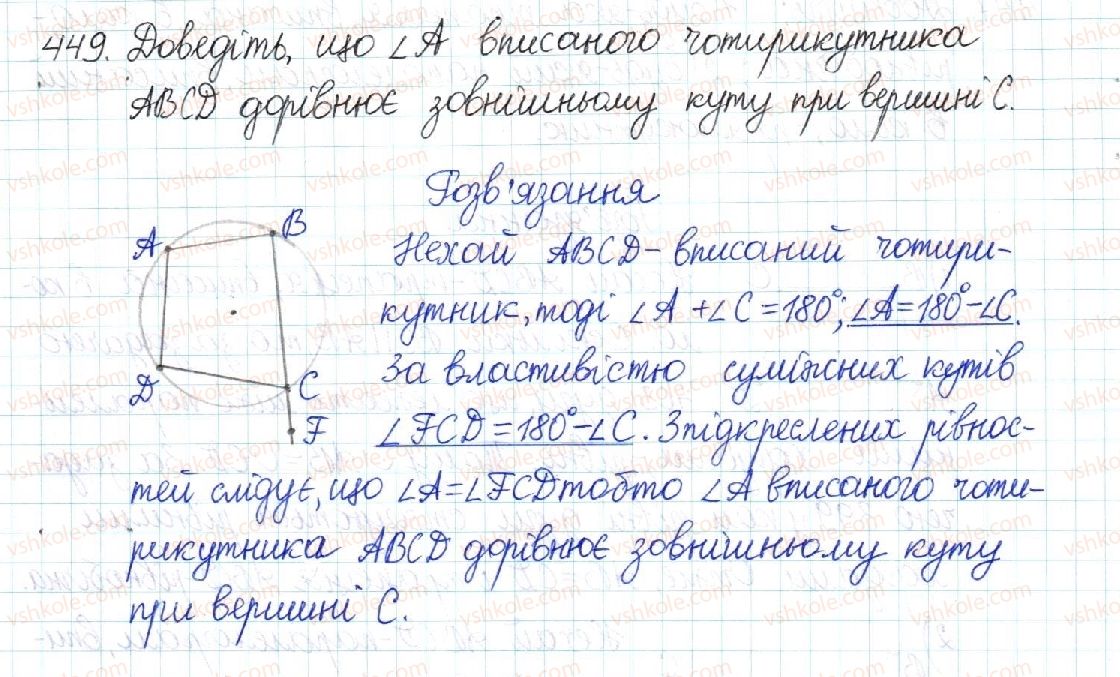 449. Доведіть, що ∠A вписаного чотирикутника
ABCD дорівнює зовнішньому куту при вершині C.
Розв'язання
A B D C F
Нехай ABCD - вписаний чотири-
кутник, тоді ∠A + ∠C = 180°; ∠A = 180° - ∠C.
За властивістю суміжних кутів
∠FCD = 180° - ∠C. З підкреслених рівнос-
тей слідує, що ∠A = ∠FCD тобто ∠A вписаного чоти-
рикутника ABCD дорівнює зовнішньому куту
при вершині C.
vshkole.com